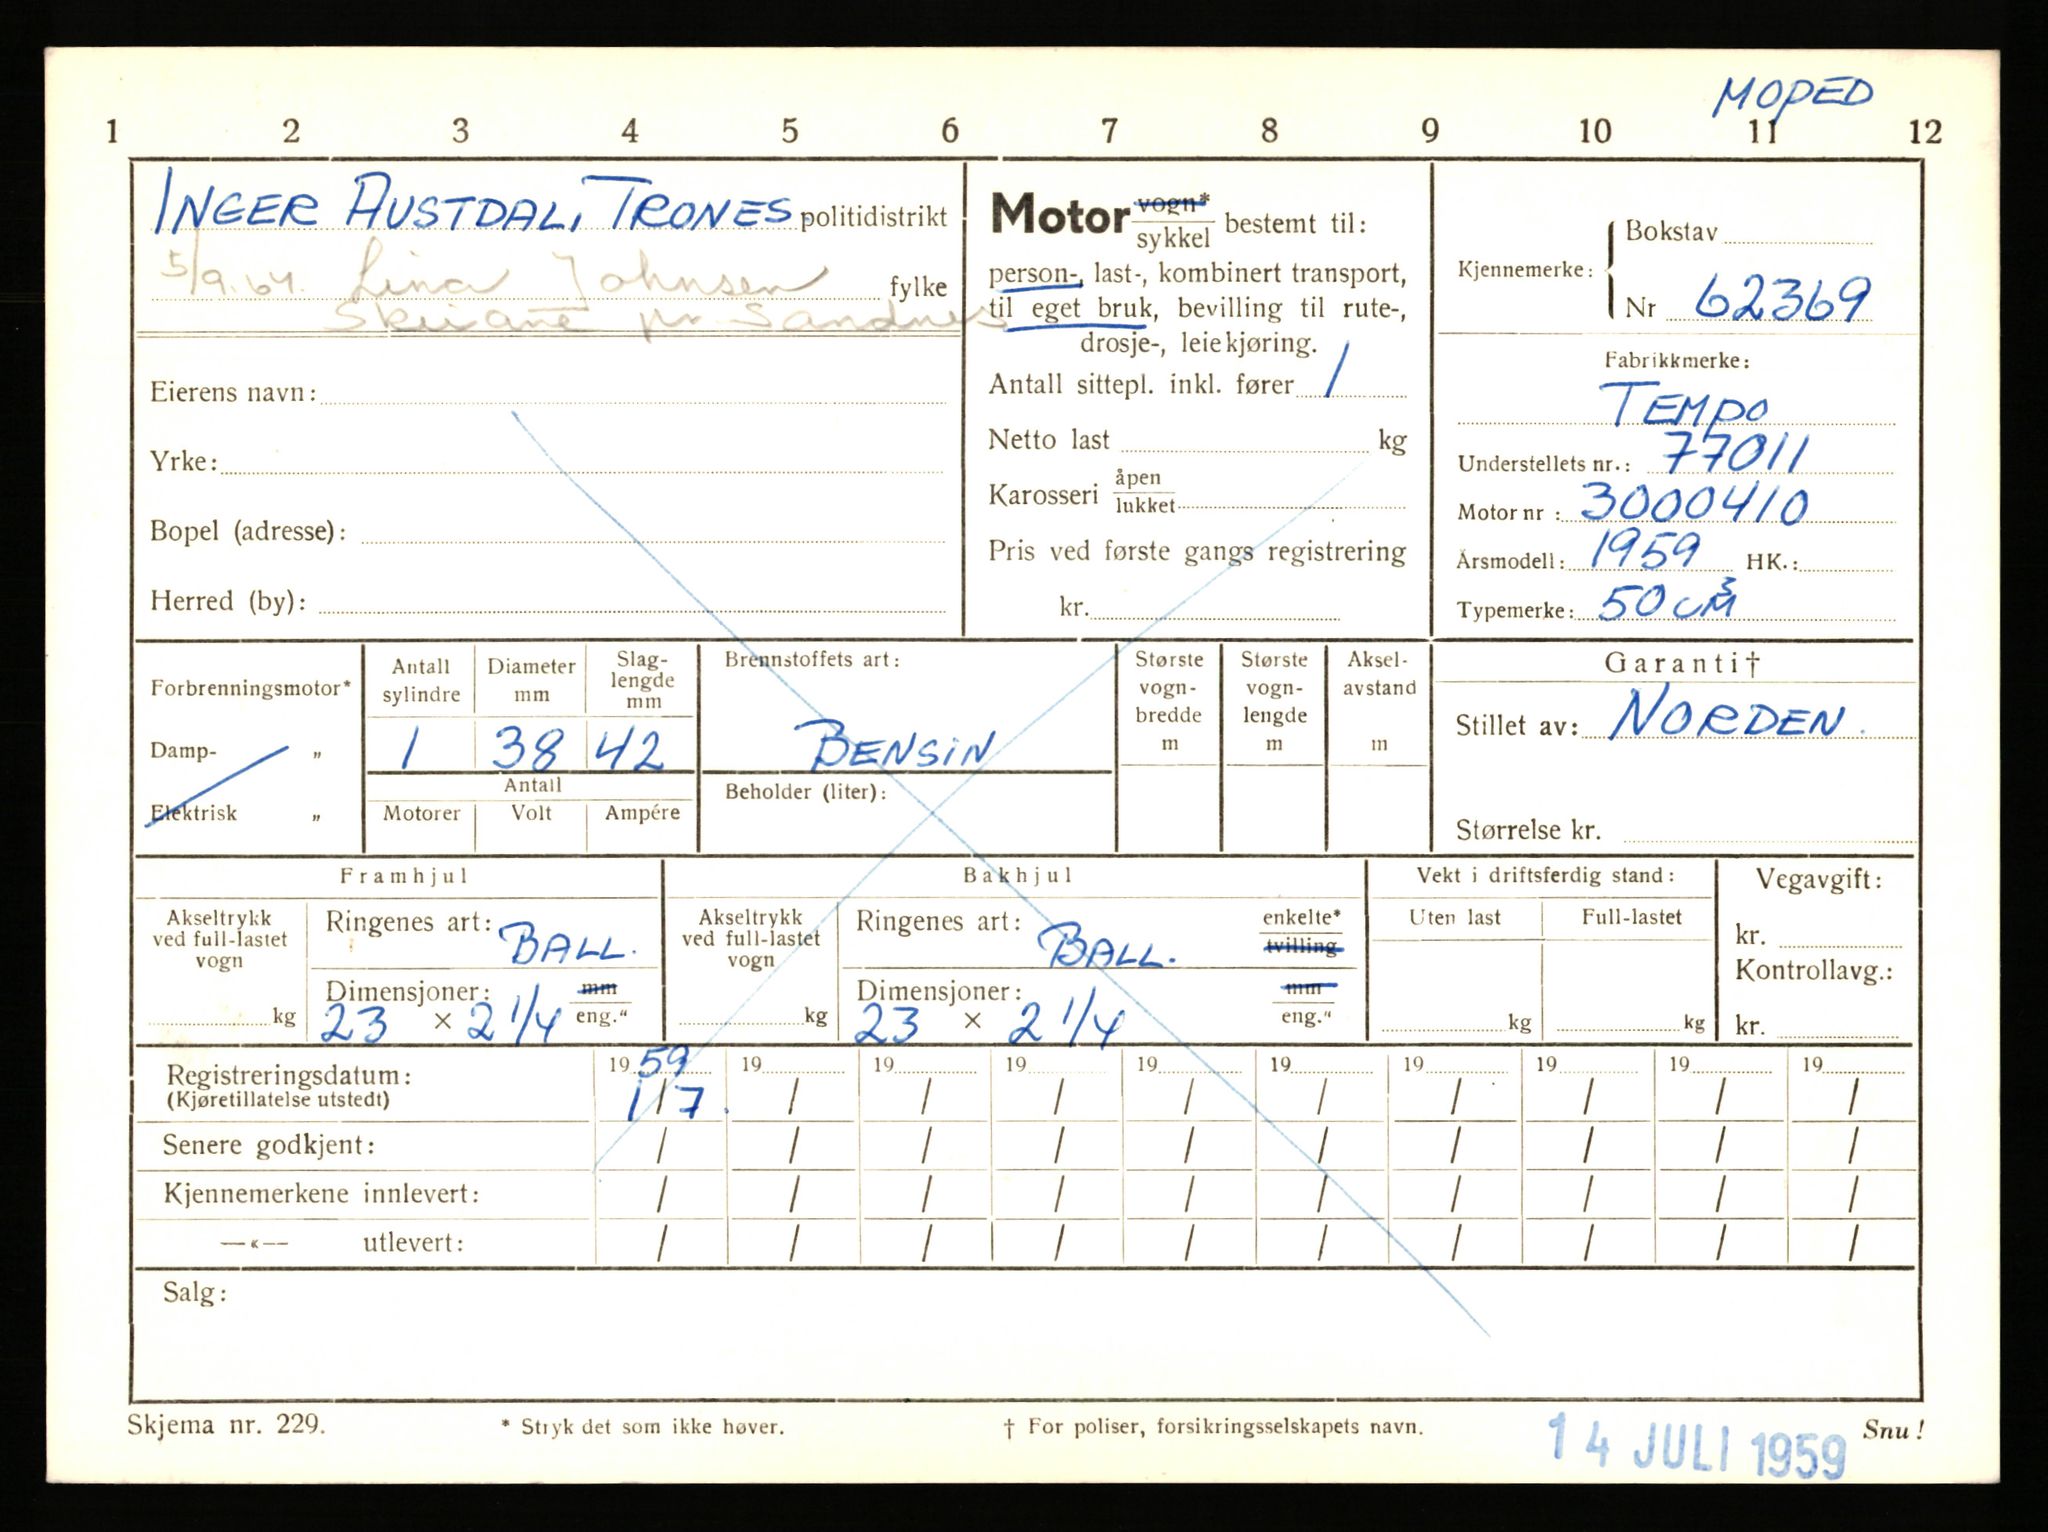 MOPED
1 2 3 4 5 6 7 8 9 10 11 12
INGER AUSTDAL, TRONES. politidistrikt
5/9.64. Lina Johnsen fylke
Skeiane pr. Sandnes
Eierens navn:
Yrke:
Bopel (adresse):
Herred (by):
Motor vogn* sykkel bestemt til:
person-, last-, kombinert transport,
til eget bruk, bevilling til rute-,
drosje-, leiekjøring.
Antall sittepl. inkl. fører 1
Netto last kg
Karosseri åpen lukket
Pris ved første gangs registrering
kr.
Kjennemerke: { Bokstav
Nr 62369
Fabrikkmerke:
TEMPO
Understellets nr.: 77011
Motor nr : 3000410
Årsmodell: 1959 HK.:
Typemerke: 50 cm³
Forbrenningsmotor*
Damp- „
Elektrisk „
Antall sylindre
Diameter mm
Slag-
lengde
mm
1 38 42
Antall
Motorer Volt Ampére
Brennstoffets art:
BENSIN
Beholder (liter):
Største
vogn-
bredde
m
Største
vogn-
lengde
m
Aksel-
avstand
m
Garanti†
Stillet av: NORDEN.
Størrelse kr.
Framhjul
Akseltrykk
ved full-lastet
vogn
kg
Ringenes art:
BALL.
Dimensjoner: mm
23 × 2 1/4 eng."
Bakhjul
Akseltrykk
ved full-lastet
vogn
kg
Ringenes art: enkelte*
BALL. tvilling
Dimensjoner: mm
23 × 2 1/4 eng."
Vekt i driftsferdig stand:
Uten last Full-lastet
kg kg
Vegavgift:
kr.
Kontrollavg.:
kr.
Registreringsdatum: 19 59 19 19 19 19 19 19 19 19 19
(Kjøretillatelse utstedt) 1 / 7. / / / / / / / / /
Senere godkjent: / / / / / / / / / /
Kjennemerkene innlevert: / / / / / / / / / /
—«— utlevert: / / / / / / / / / /
Salg:
Skjema nr. 229. * Stryk det som ikke høver. † For poliser, forsikringsselskapets navn. Snu!
14 JULI 1959